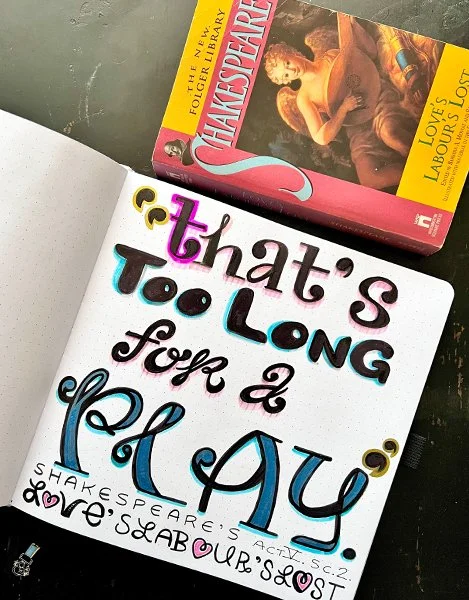 THE NEW
FOLGER LIBRARY
SHAKESPEARE
LOVE'S
LABOUR'S LOST
“that's
TOO LONG
for a
PLAY.”
SHAKESPEARE'S ACT V. SC.2.
LOVE'S LABOUR'S LOST